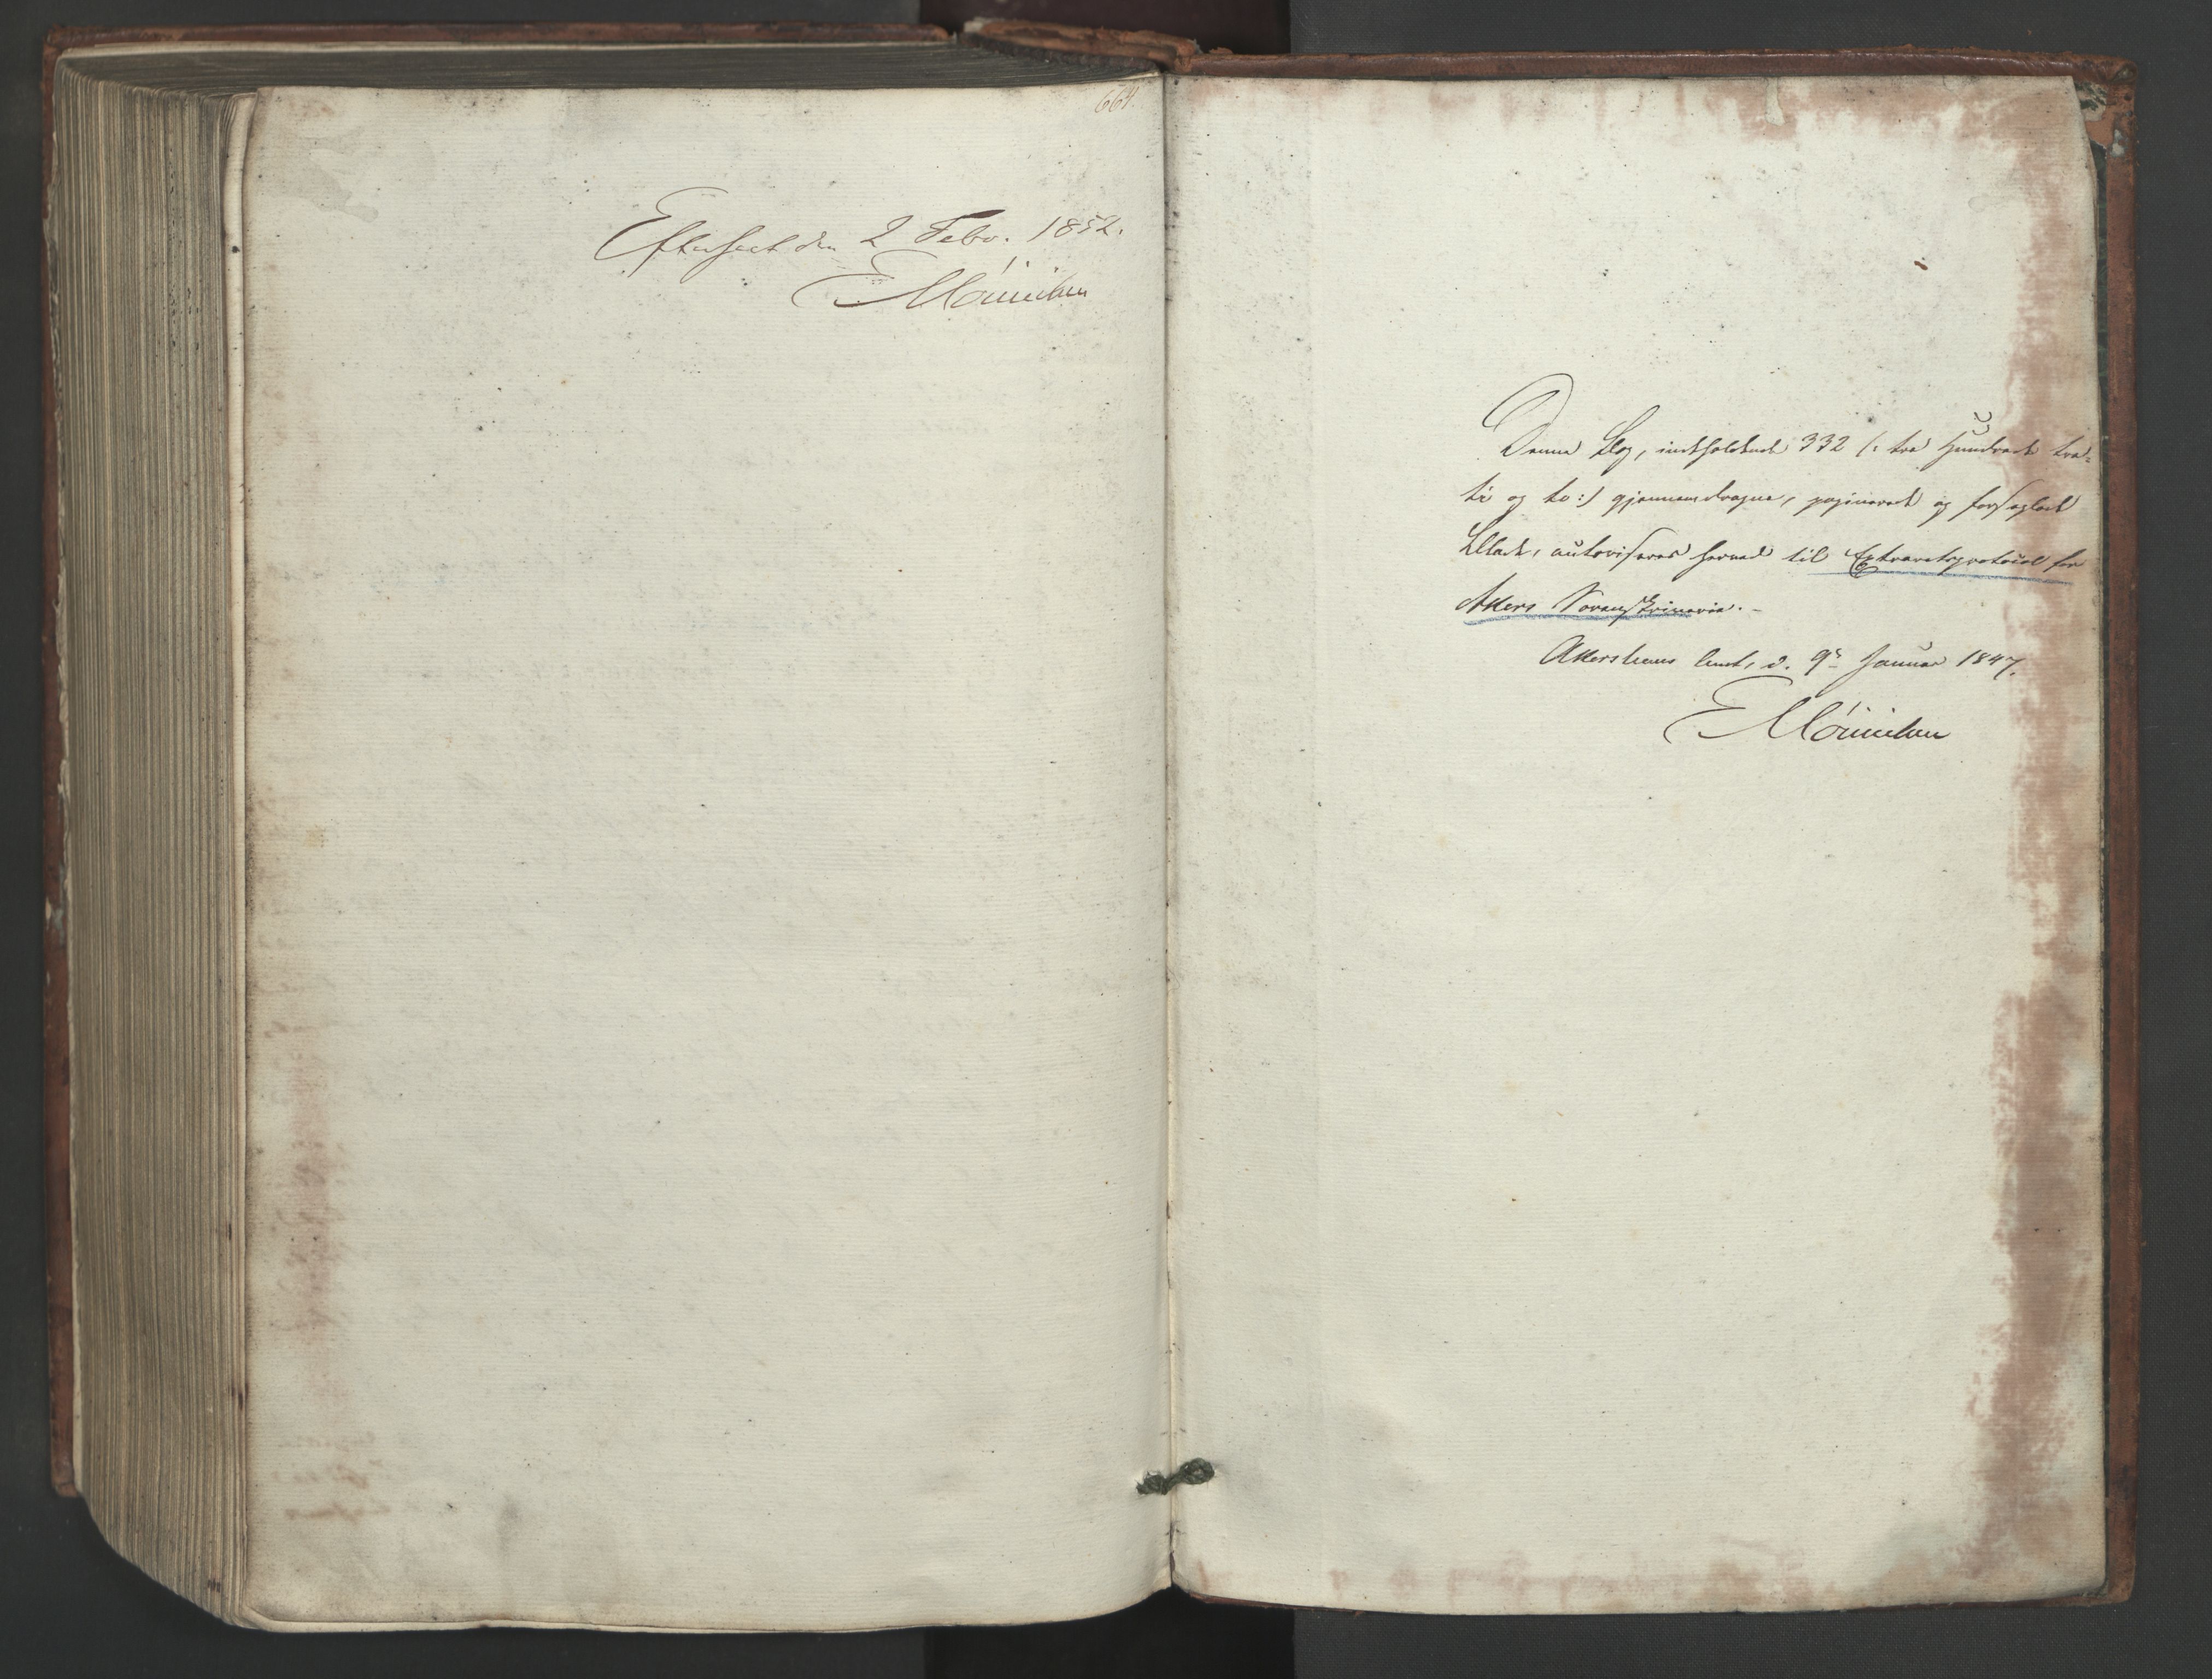 664.
Efterseet den 2 Febr. 1852.
EMünichen
Denne Bog, indeholdende 332 /: tre Hundrede tre-
ti og to :/ gjennemdragne, paginerede og forseglede
Blade, autoriseres herved til Extraretsprotocol for
Akers Sorenskriverie. -
Akershuus Amt, d. 9de Januar 1847.